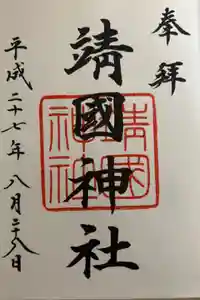 奉拝
靖國神社
靖国神社
平成二十七年八月二十八日